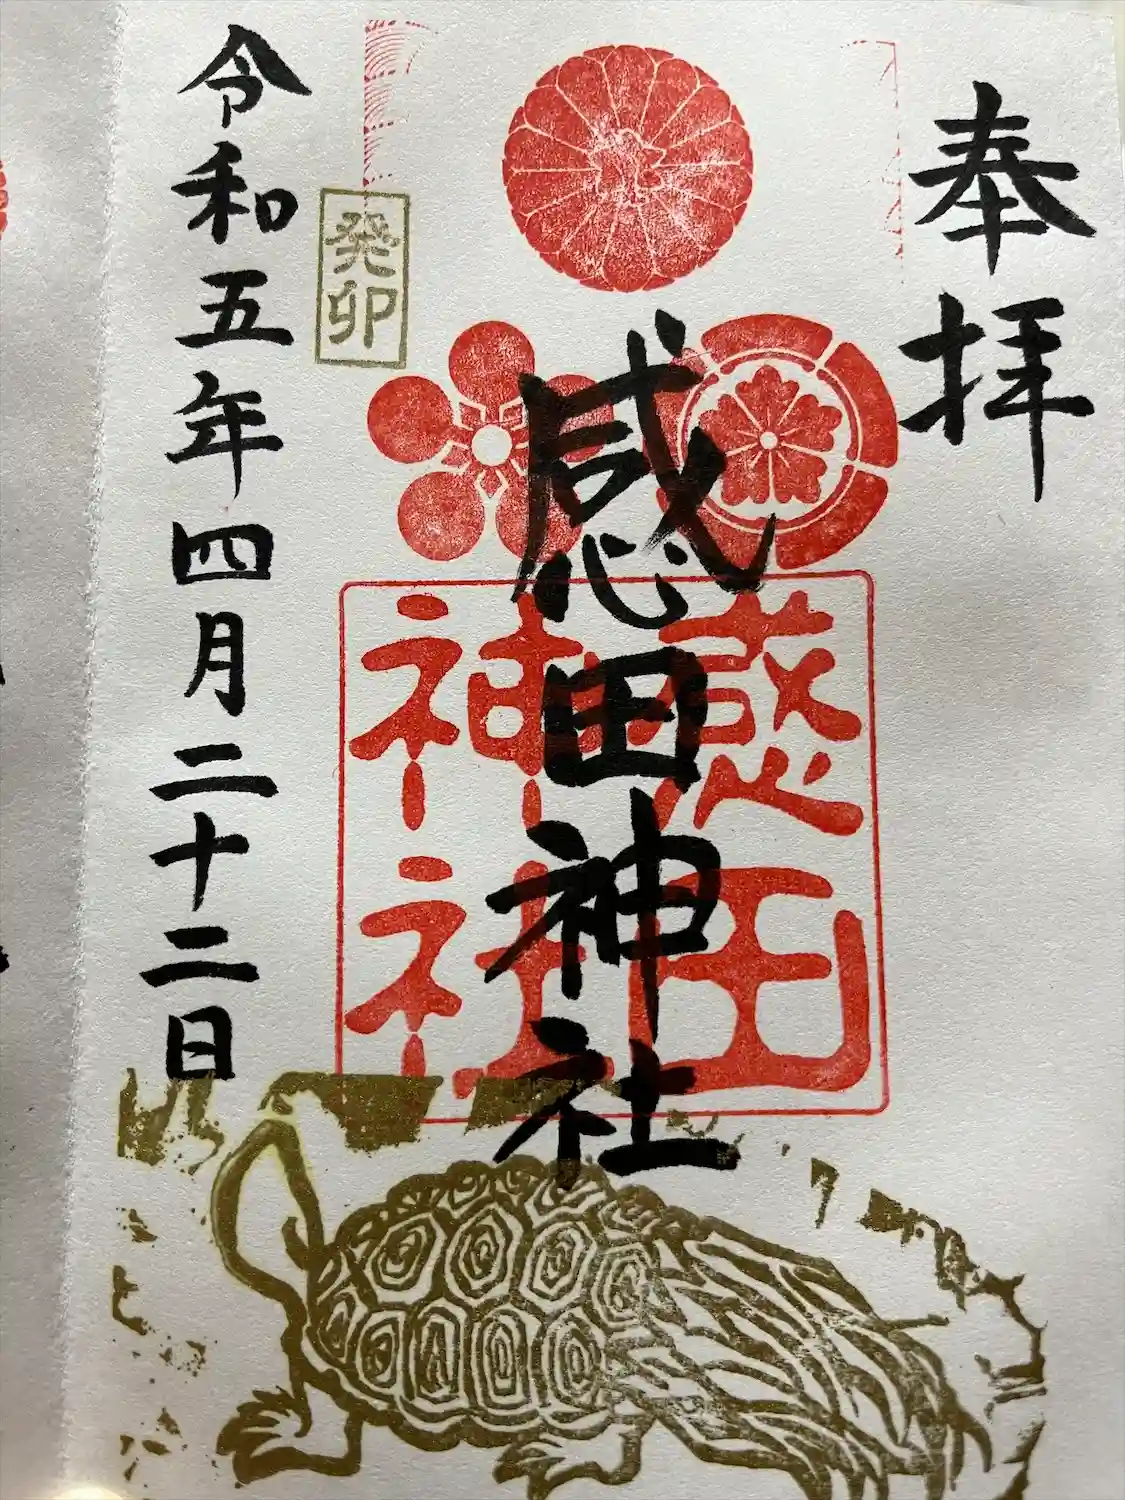 奉拝
感田神社
感田
神社
癸卯
令和五年四月二十二日